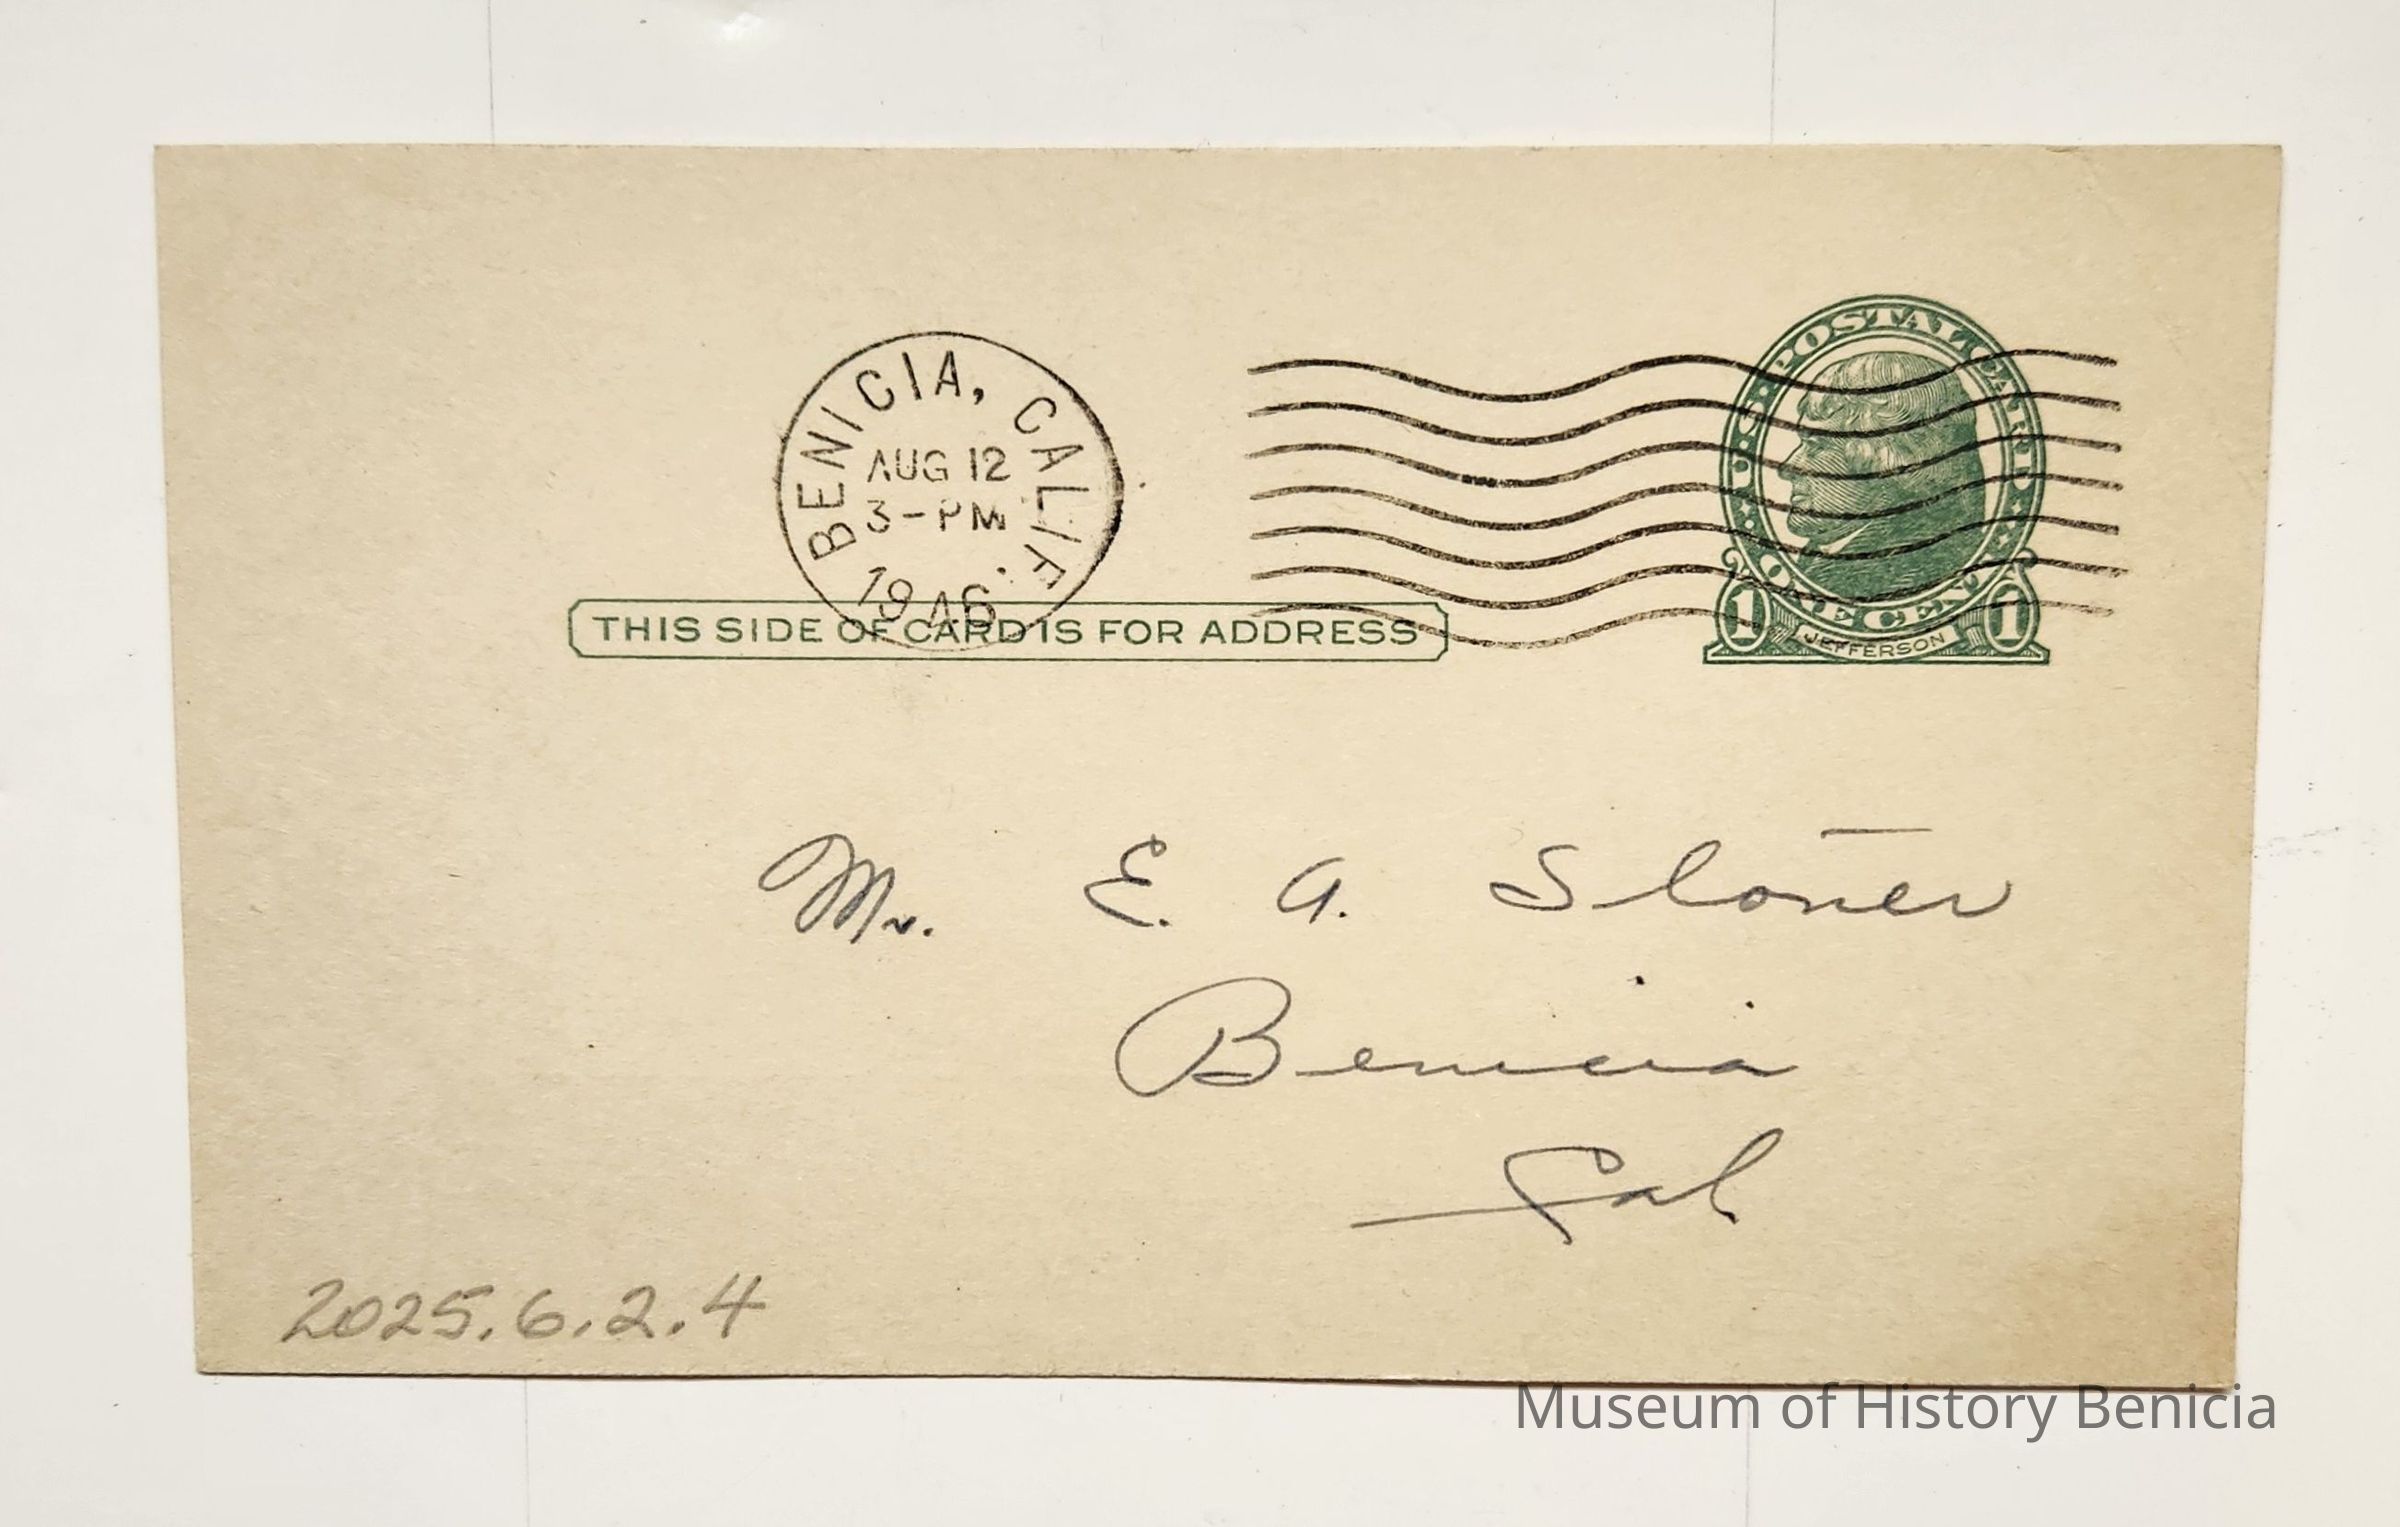 BENICIA, CALIF.
AUG 12
3-PM
1946
U.S. POSTAL CARD
ONE CENT
1 JEFFERSON 1
THIS SIDE OF CARD IS FOR ADDRESS
Mr. E. A. Stoner
Benicia
Cal
2025.6.2.4
Museum of History Benicia